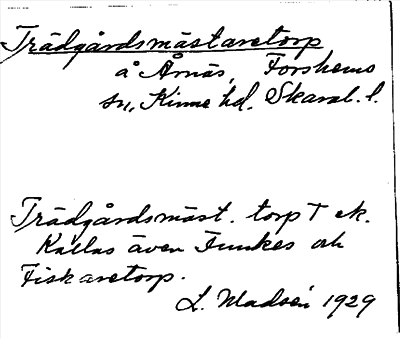 Trädgårdsmästaretorp
å Årnäs, Forshems
sn, Kinne hd. Skarab. l.
Trädgårdsmäst. torp T ek.
Kallas även Funkes och
Fiskaretorp.
L. Madsén 1929